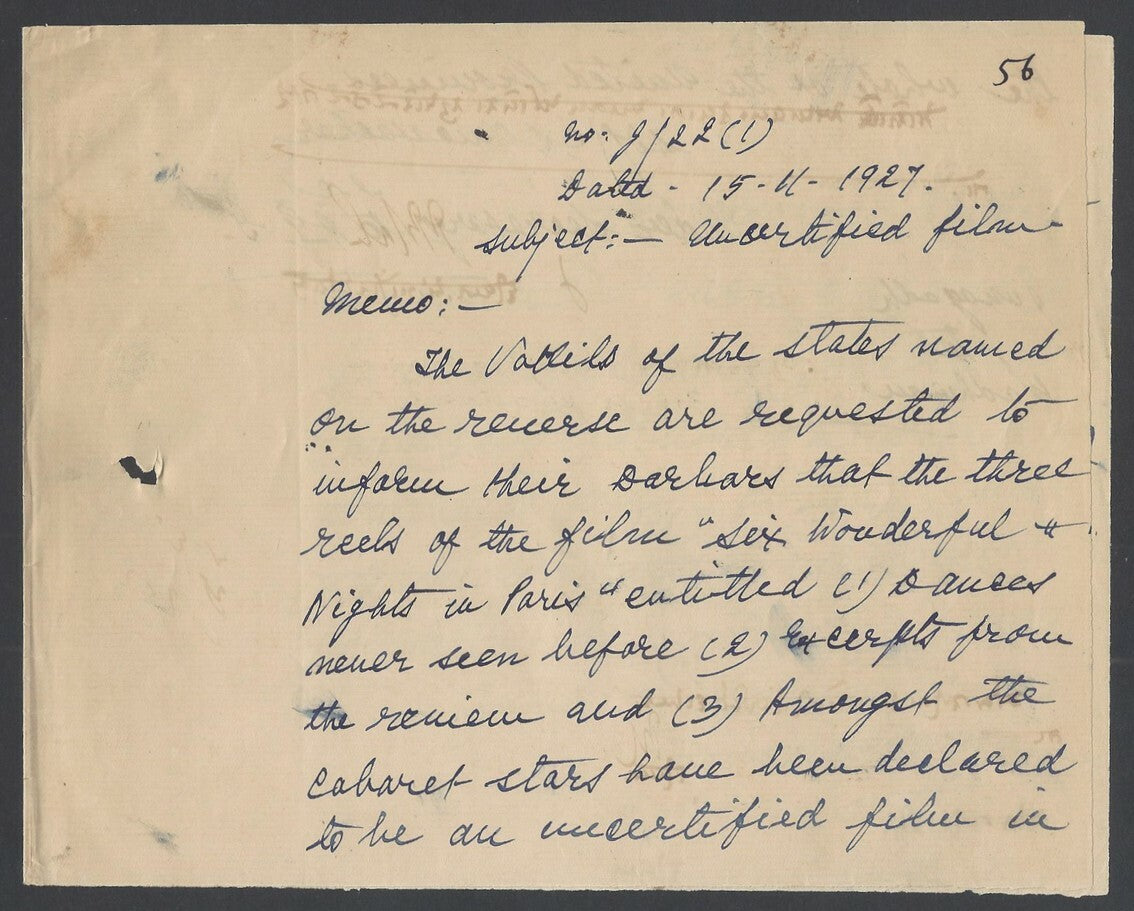 56
No: J/22(1)
Dated - 15-11-1927.
Subject:- Uncertified film-
Memo:-
The Vakils of the states named
on the reverse are requested to
inform their Darbars that the three
reels of the film "Six Wonderful "
Nights in Paris" entitled (1) Dances
never seen before (2) Excerpts from
the review and (3) Amongst the
Cabaret stars have been declared
to be an uncertified film in